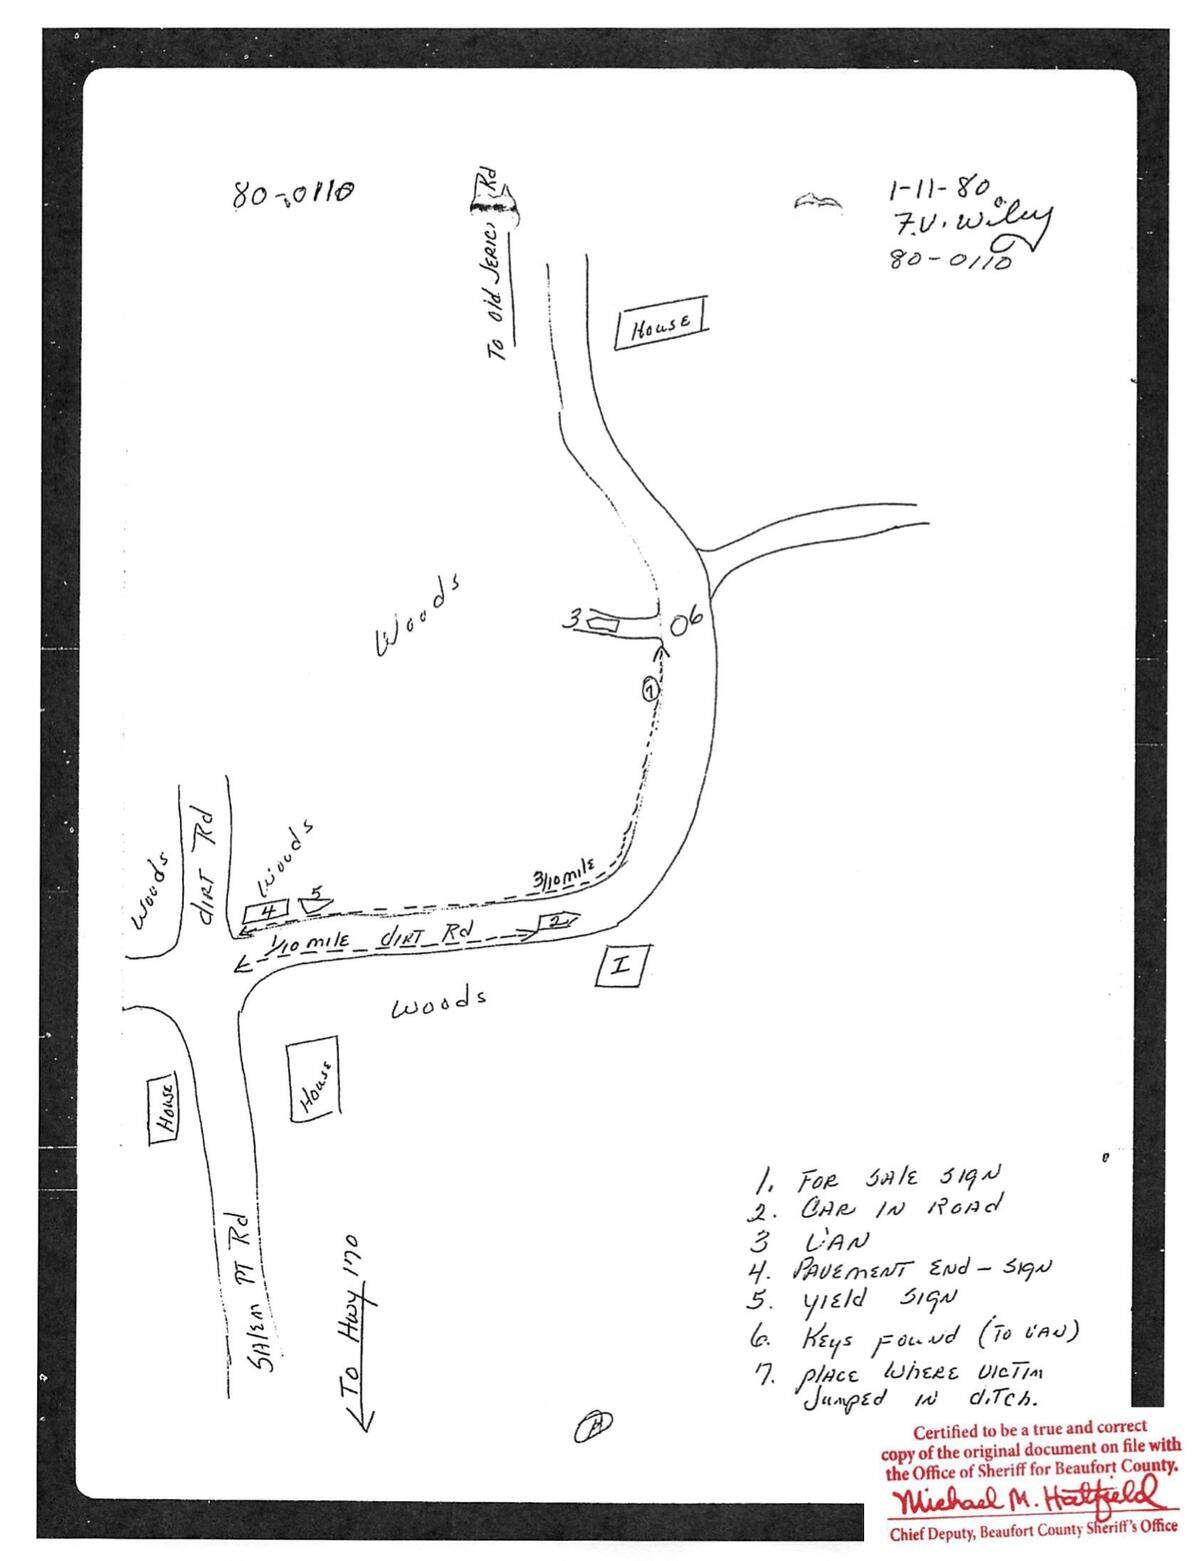 80-0110
To Old JERIC Rd
1-11-80
F.V. Wiley
80-0110
HOUSE
Woods
3
6
7
Woods
DIRT Rd
Woods
4
5
3/10 MILE
1/10 MILE DIRT Rd
2
I
Woods
HOUSE
HOUSE
SALEM PT Rd
To Hwy 170
1. FOR SALE SIGN
2. CAR IN ROAD
3 VAN
4. PAVEMENT END - SIGN
5. YIELD SIGN
6. KEYS FOUND (TO VAN)
7. PLACE WHERE VICTIM
Jumped IN diTch.
Certified to be a true and correct
copy of the original document on file with
the Office of Sheriff for Beaufort County.
Michael M. Hatfield
Chief Deputy, Beaufort County Sheriff's Office